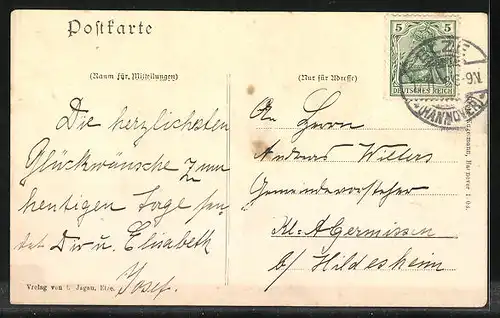 Postkarte
(Raum für Mitteilungen)
(Nur für Adresse)
5 5
DEUTSCHES REICH
ELZE
8-9V.
(HANNOVER)
Die herzlichsten
Glückwünsche zum
heutigen Tage sen-
det Dir u. Elisabeth
Josef.
An Herrn
Andreas Willers
Gemeindevorsteher
Kl.-Algermissen
b/ Hildesheim
Verlag von L. Jagau, Elze.
Hannover